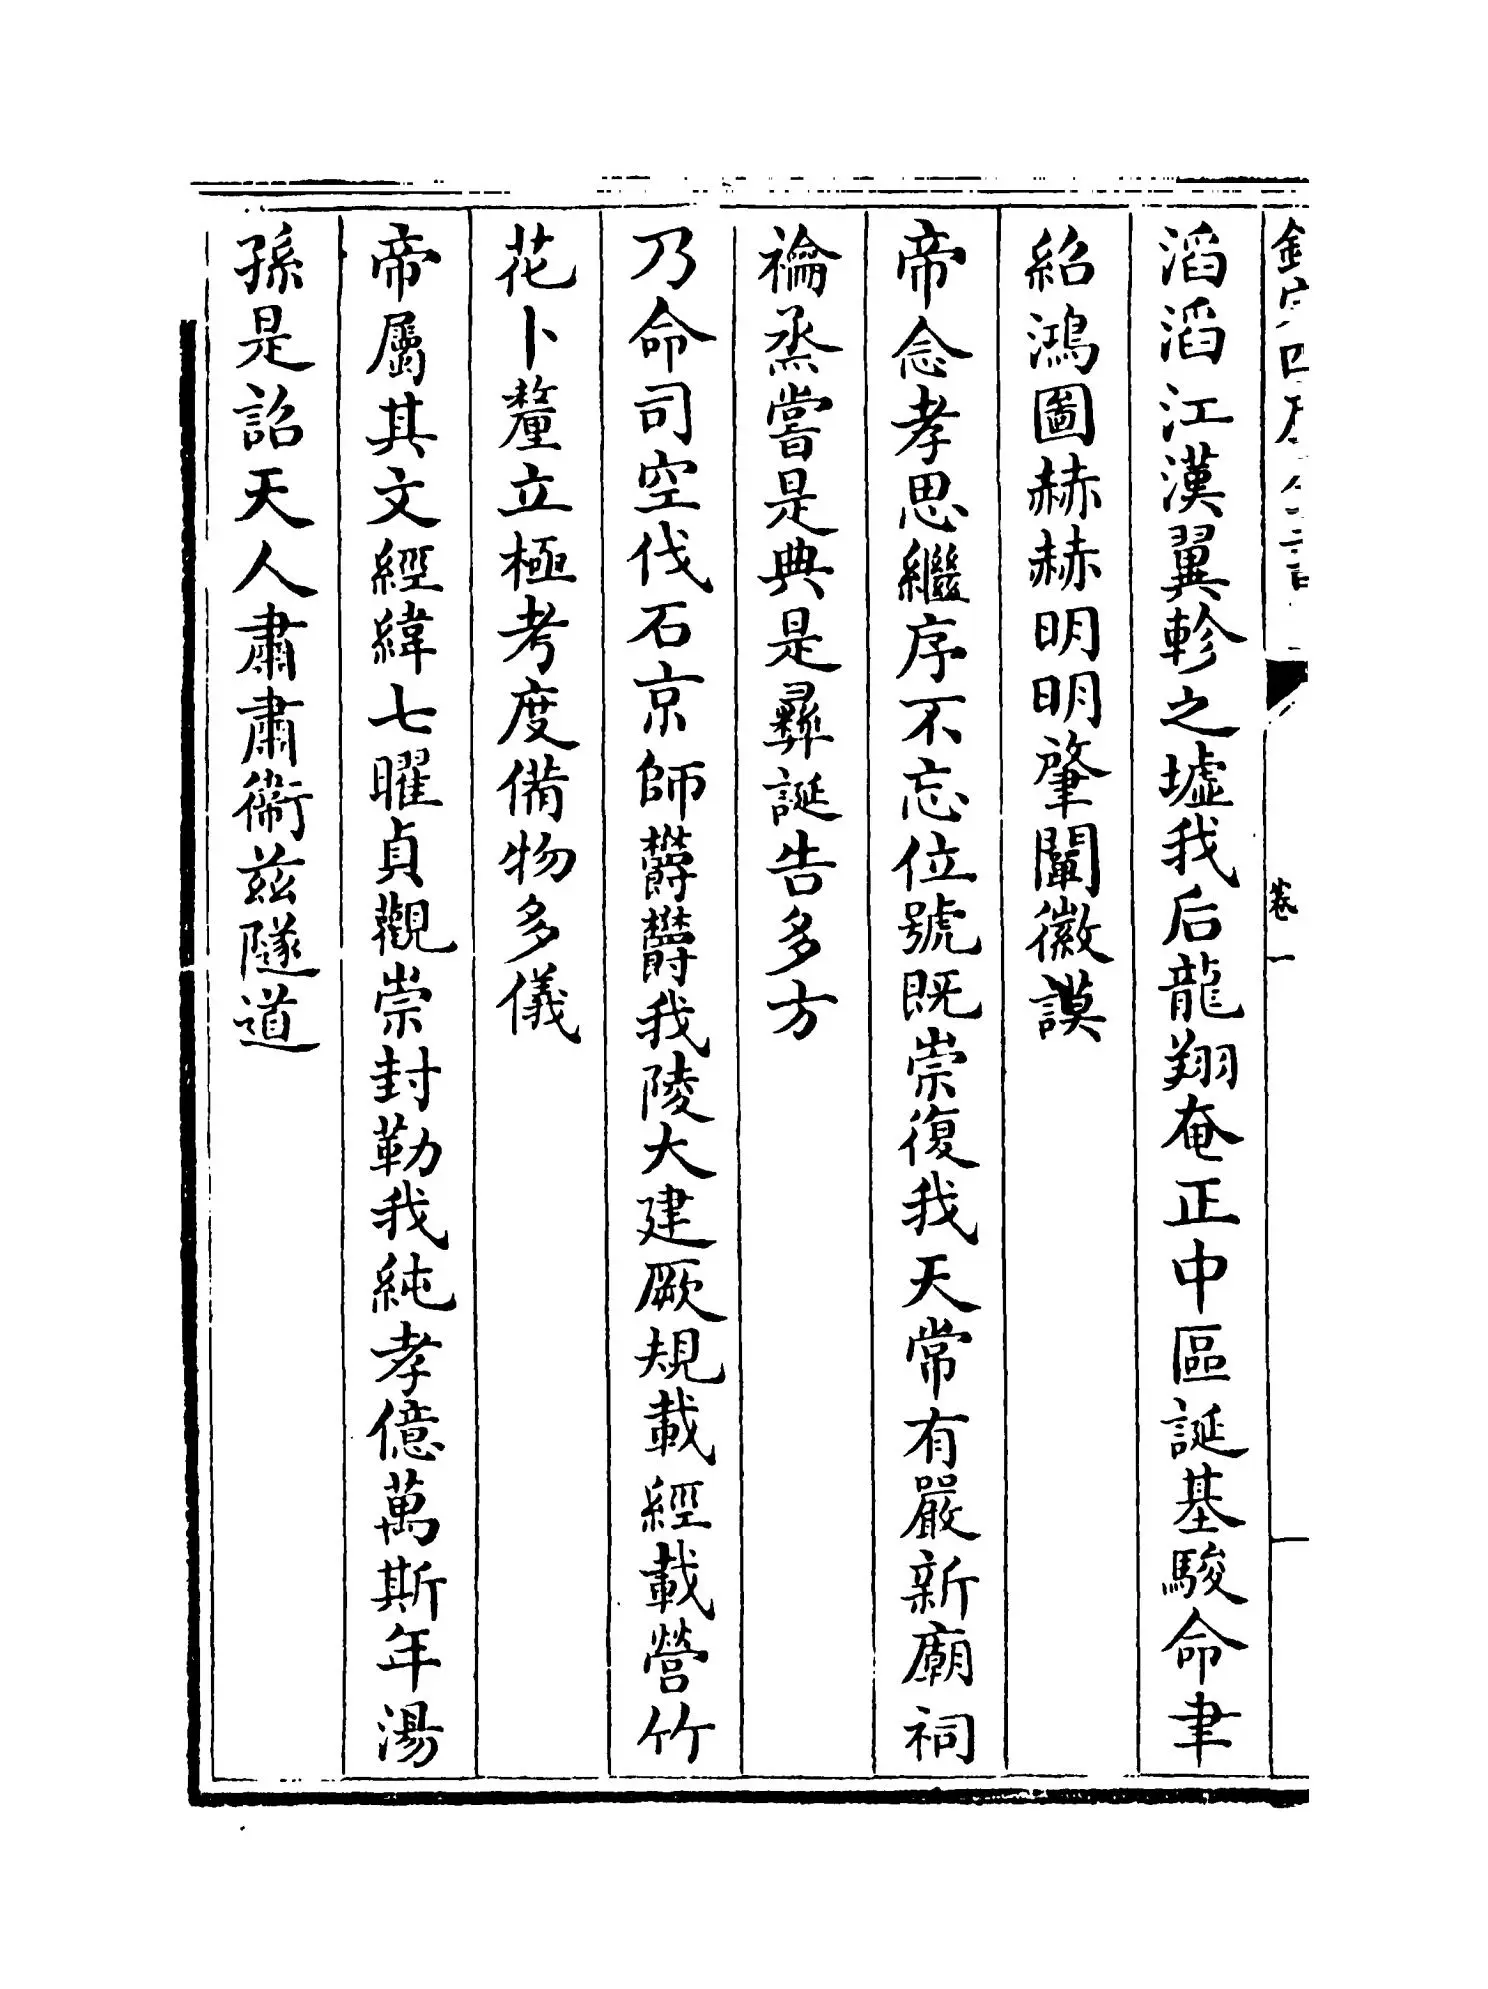 滔滔江漢翼軫之墟我后龍翔奄正中區誕基駿命聿
紹鴻圖赫赫明明肇闡徽謨
帝念孝思繼序不忘位號既崇復我天常有嚴新廟祠
禴烝嘗是典是彞誕告多方
乃命司空伐石京師欝欝我陵大建厥規載經載營竹
花卜釐立極考度備物多儀
帝屬其文經緯七曜貞觀崇封勒我純孝億萬斯年湯
孫是詔天人肅肅衞兹隧道
卷一